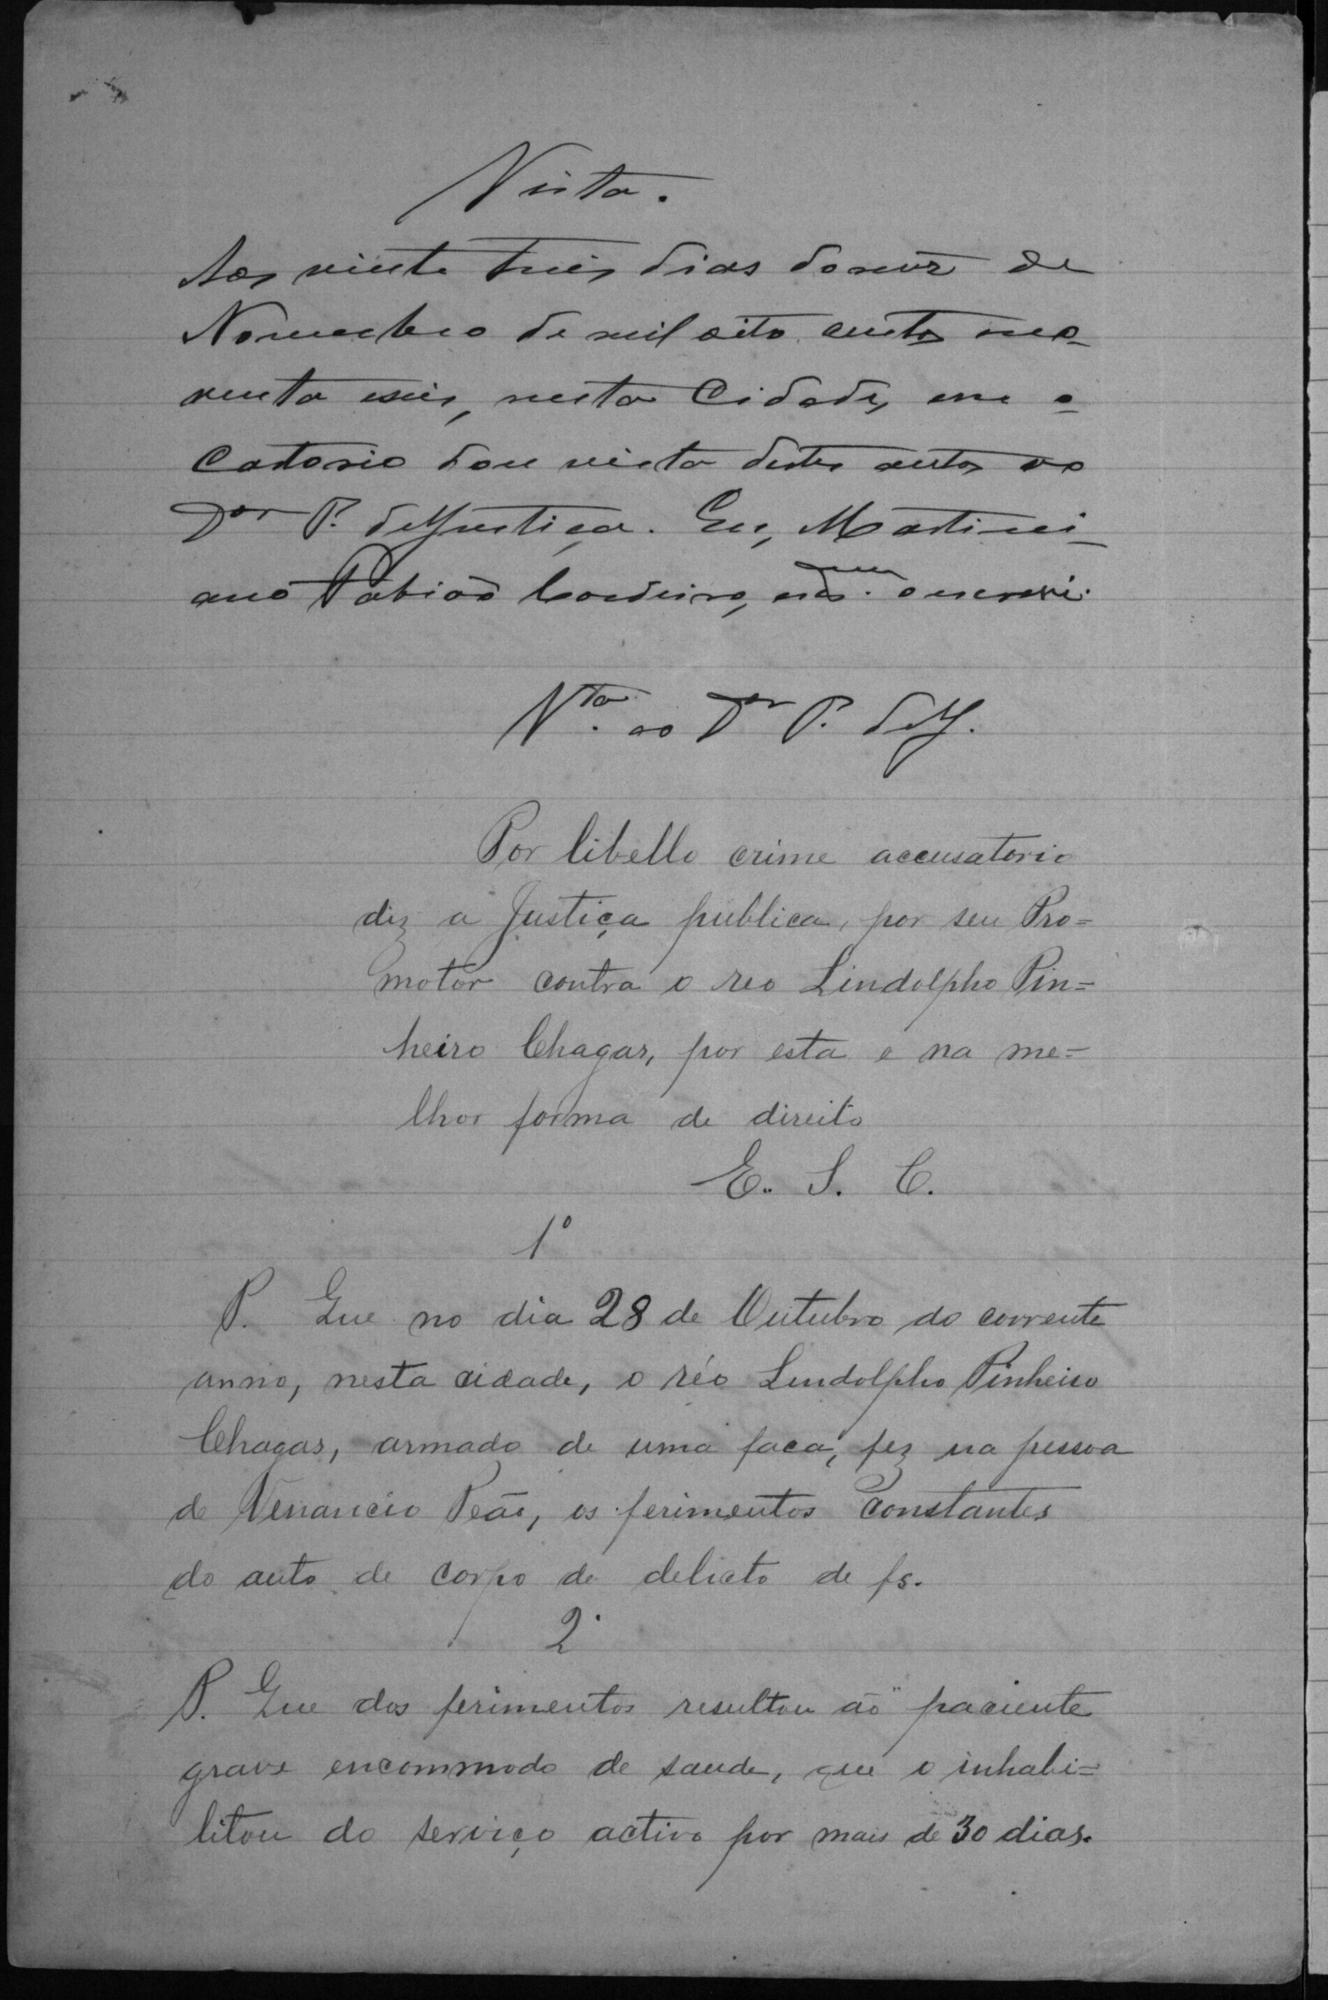 Vista.
Aos vinte tres dias do mez de
Novembro de mil oito centos no-
venta e seis, nesta Cidade, em o
Cartorio dou vista destes autos ao
Dor P. de Justiça. Eu, Martini-
ano Fabião Cordeiro, o escrevi.
Vta. ao Dr P. de J.
Por libello crime accusatorio
diz a Justiça publica, por seu Pro=
motor contra o reo Lindolpho Pin=
heiro Chagas, por esta e na me=
lhor forma de direito
E. S. C.
1º
P. Que no dia 28 de Outubro do corrente
anno, nesta cidade, o réo Lindolpho Pinheiro
Chagas, armado de uma faca, fez na pessoa
de Venancio Peão, os ferimentos constantes
do auto de corpo de delicto de fs.
2º
P. Que dos ferimentos resultou ao paciente
grave encommodo de saude, que o inhabi=
litou do serviço activo por mais de 30 dias.